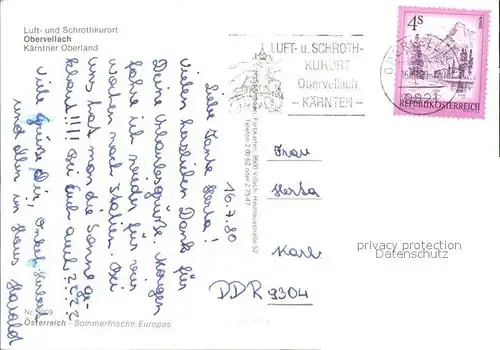 Luft- und Schrothkurort
Obervellach
Kärntner Oberland
LUFT- u. SCHROTH-
KURORT
Obervellach
- KÄRNTEN -
4S
REPUBLIK ÖSTERREICH
9821
16.7.80
Liebe Tante Herta!
Vielen herzlichen Dank für
Deine Urlaubsgrüße. Morgen
fahre ich wieder für vier
Wochen nach Italien. Bei
uns hat man die Sonne ge-
klaut!!!! Bei Euch auch????
Viele Grüße Dir, Onkel Herbert
und allen im Haus Harald
Farbkarten, 9500 Villach, Heidenaustraße 52
Telefon 2 60 62 oder 2 75 47
Frau
Herta
Karl
DDR 9304
privacy protection
Datenschutz
Österreich - Sommerfrische Europas